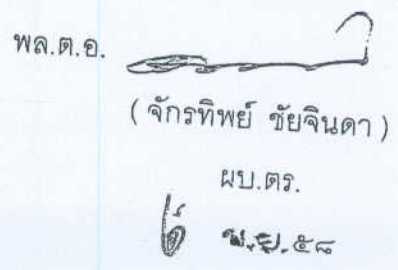 พล.ต.อ.
( จักรทิพย์ ชัยจินดา )
ผบ.ตร.
พ.ย. ๕๘